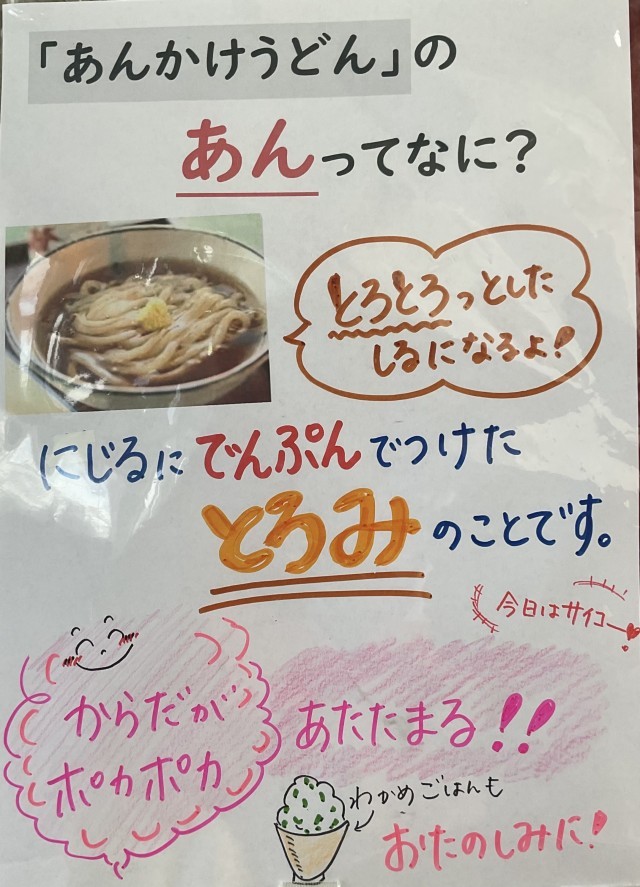 「あんかけうどん」の
あんってなに?
とろとろっとした
しるになるよ!
にじるにでんぷんでつけた
とろみのことです。
今日はサイコー
からだが
ポカポカ
あたたまる!!
わかめごはんも
おたのしみに!